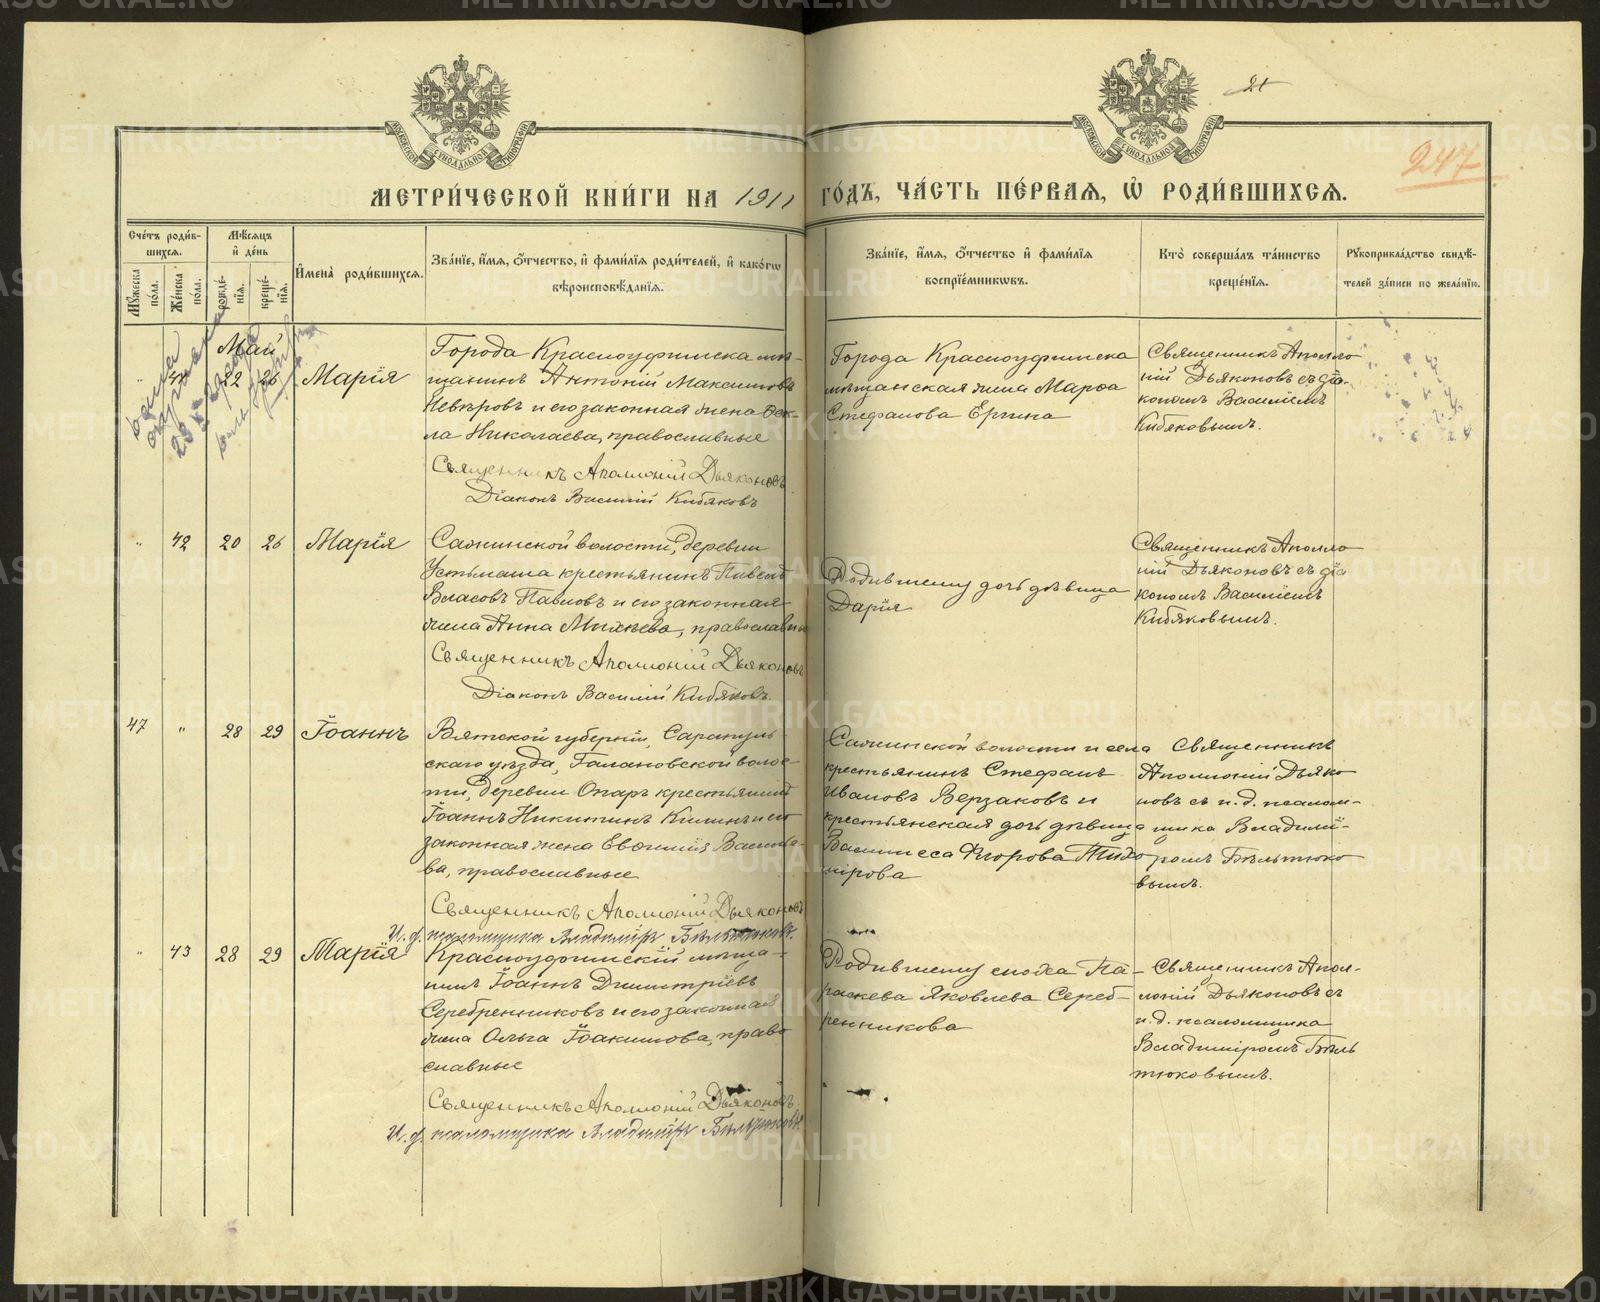 МЕТРИ́ЧЕСКОЙ КНИ́ГИ НА 1911 ГО́ДЪ, ЧА́СТЬ ПЕ́РВАЯ, Ѡ҆ РОДИ́ВШИХСЯ.
21
247
МОСКОВСКОЙ СѴНОДАЛЬНОЙ ТИПОГРАФІИ
МОСКОВСКОЙ СѴНОДАЛЬНОЙ ТИПОГРАФІИ
Сче́тъ роди́в-
шихся.
Му́жеска по́ла.
Же́нска по́ла.
Мѣ́сяцъ
и҆ де́нь
рожде́-
нїя.
креще́-
нїя.
И҆мена̀ роди́вшихся.
Зва́нїе, и҆́мя, ѻ҆́тчество, и҆ фами́лїя роди́телей, и҆ како́гѡ
вѣроисповѣ́данїя.
Зва́нїе, и҆́мя, ѻ҆́тчество и҆ фами́лїя
воспрїе́мникѡвъ.
Кто̀ соверша́лъ та́инство
креще́нїя.
Рꙋкоприкла́дство свидѣ́-
телей за́писи по жела́нїю.
Май
" 41 22 26 Марія
Города Красноуфимска мѣ-
щанинъ Антоній Максимовъ
Невѣровъ и его законная жена Ѳек-
ла Николаева, православные
Священникъ Аполлоній Дьяконовъ
Діаконъ Василій Кибяковъ
Города Красноуфимска
мѣщанская жена Марѳа
Стефанова Ергина
Священникъ Аполло
ній Дьяконовъ съ діа-
кономъ Василіемъ
Кибяковымъ.
" 42 20 26 Марія
Сажинской волости, деревни
Устьмаша крестьянинъ Павелъ
Власовъ Павловъ и его законная
жена Анна Михѣева, православные
Священникъ Аполлоній Дьяконовъ
Діаконъ Василій Кибяковъ.
Родившему дочь дѣвица
Дарія
Священникъ Аполло
ній Дьяконовъ съ діа
кономъ Василіемъ
Кибяковымъ.
47 " 28 29 Іоаннъ
Вятской губерніи, Сарапуль-
скаго уѣзда, Галановской волос-
ти, деревни Опаръ крестьянинъ
Іоаннъ Никитинъ Килинъ и его
законная жена Евѳимія Василье-
ва, православные
Священникъ Аполлоній Дьяконовъ
И. д. псаломщика Владиміръ Бѣльтюковъ.
Сажинской волости и села
крестьянинъ Стефанъ
Ивановъ Верзаковъ и
крестьянская дочь дѣвица
Василисса Егорова Тихо
мірова
Священникъ
Аполлоній Дьяко
новъ съ и. д. псалом-
щика Владимі-
ромъ Бѣльтюко
вымъ.
" 43 28 29 Марія
Красноуфимскій мѣща-
нинъ Іоаннъ Димитріевъ
Серебренниковъ и его законная
жена Ольга Іоакимова, право
славные
Священникъ Аполлоній Дьяконовъ.
И. д. псаломщика Владиміръ Бѣльтюковъ
Родившему сноха Па-
раскева Яковлева Сереб-
ренникова
Священникъ Апол-
лоній Дьяконовъ съ
и. д. псаломщика
Владиміромъ Бѣль
тюковымъ.
METRIKI.GASO-URAL.RU